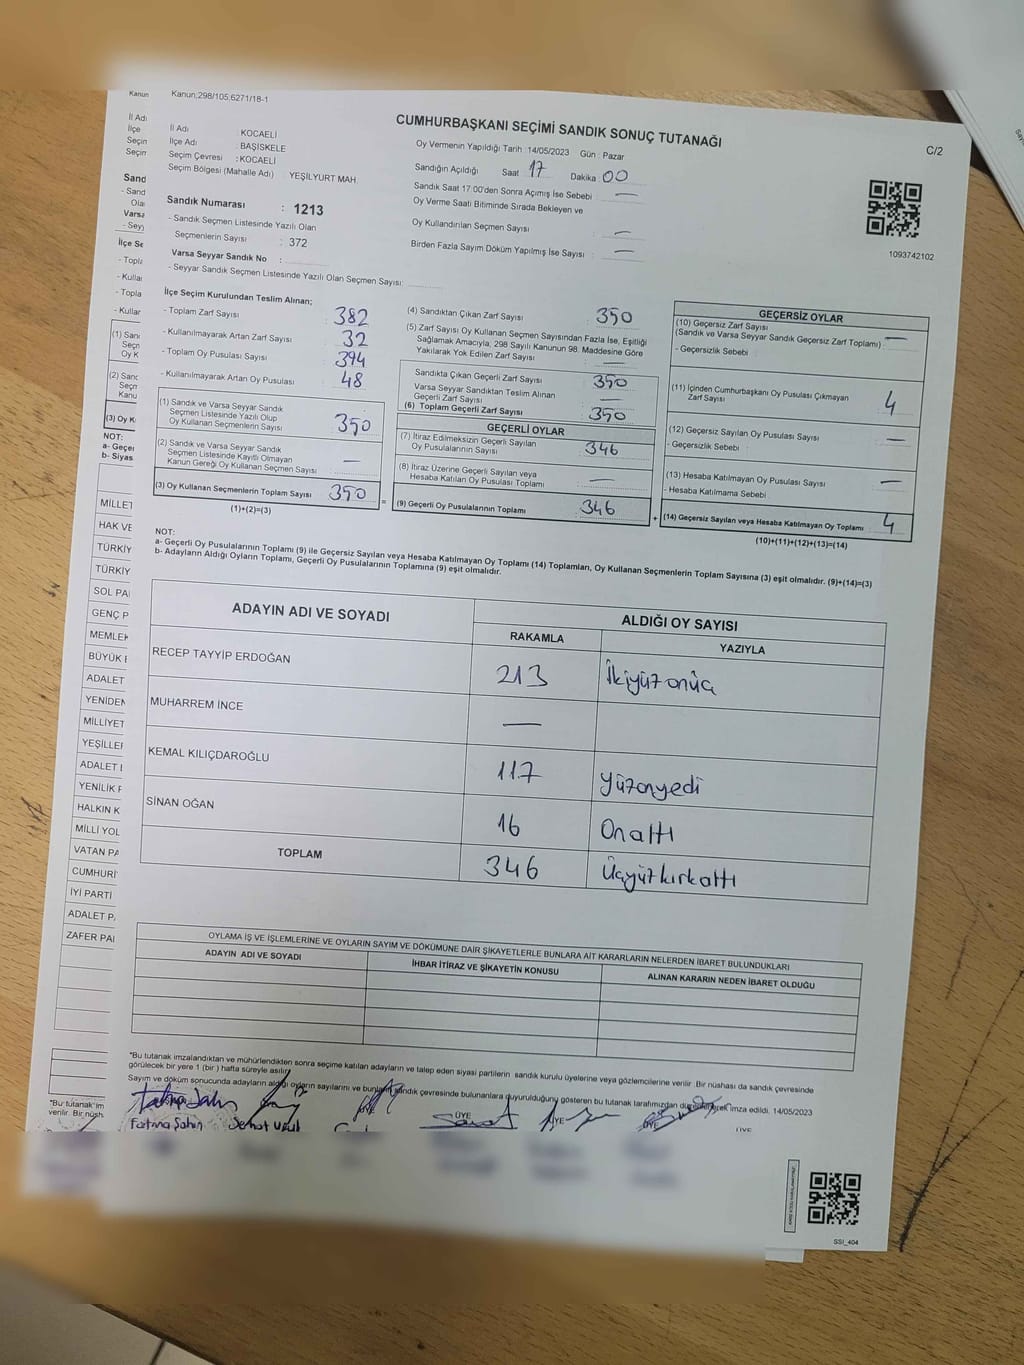 Kanun;298/105;6271/18-1
CUMHURBAŞKANI SEÇİMİ SANDIK SONUÇ TUTANAĞI
C/2
İl Adı : KOCAELİ
İlçe Adı : BAŞİSKELE
Seçim Çevresi : KOCAELİ
Seçim Bölgesi (Mahalle Adı) YEŞİLYURT MAH
Sandık Numarası : 1213
- Sandık Seçmen Listesinde Yazılı Olan
Seçmenlerin Sayısı : 372
Varsa Seyyar Sandık No :
- Seyyar Sandık Seçmen Listesinde Yazılı Olan Seçmen Sayısı:
Oy Vermenin Yapıldığı Tarih :14/05/2023 Gün : Pazar
Sandığın Açıldığı Saat 17 Dakika : 00
Sandık Saat 17:00'den Sonra Açımış İse Sebebi : —
Oy Verme Saati Bitiminde Sırada Bekleyen ve
Oy Kullandırılan Seçmen Sayısı : —
Birden Fazla Sayım Döküm Yapılmış İse Sayısı : —
1093742102
İlçe Seçim Kurulundan Teslim Alınan;
- Toplam Zarf Sayısı : 382
- Kullanılmayarak Artan Zarf Sayısı : 32
- Toplam Oy Pusulası Sayısı : 394
- Kullanılmayarak Artan Oy Pusulası : 48
(1) Sandık ve Varsa Seyyar Sandık
Seçmen Listesinde Yazılı Olup
Oy Kullanan Seçmenlerin Sayısı 350
(2) Sandık ve Varsa Seyyar Sandık
Seçmen Listesinde Kayıtlı Olmayan
Kanun Gereği Oy Kullanan Seçmen Sayısı —
(3) Oy Kullanan Seçmenlerin Toplam Sayısı 350
(1)+(2)=(3)
(4) Sandıktan Çıkan Zarf Sayısı : 350
(5) Zarf Sayısı Oy Kullanan Seçmen Sayısından Fazla İse, Eşitliği
Sağlamak Amacıyla; 298 Sayılı Kanunun 98. Maddesine Göre
Yakılarak Yok Edilen Zarf Sayısı : —
Sandıkta Çıkan Geçerli Zarf Sayısı : 350
Varsa Seyyar Sandıktan Teslim Alınan
Geçerli Zarf Sayısı : —
(6) Toplam Geçerli Zarf Sayısı : 350
GEÇERLİ OYLAR
(7) İtiraz Edilmeksizin Geçerli Sayılan
Oy Pusulalarının Sayısı : 346
(8) İtiraz Üzerine Geçerli Sayılan veya
Hesaba Katılan Oy Pusulası Toplamı : —
(9) Geçerli Oy Pusulalarının Toplamı : 346
GEÇERSİZ OYLAR
(10) Geçersiz Zarf Sayısı
(Sandık ve Varsa Seyyar Sandık Geçersiz Zarf Toplamı) : —
- Geçersizlik Sebebi :
(11) İçinden Cumhurbaşkanı Oy Pusulası Çıkmayan
Zarf Sayısı : 4
(12) Geçersiz Sayılan Oy Pusulası Sayısı : —
- Geçersizlik Sebebi :
(13) Hesaba Katılmayan Oy Pusulası Sayısı : —
- Hesaba Katılmama Sebebi :
(14) Geçersiz Sayılan veya Hesaba Katılmayan Oy Toplamı : 4
(10)+(11)+(12)+(13)=(14)
NOT:
a- Geçerli Oy Pusulalarının Toplamı (9) ile Geçersiz Sayılan veya Hesaba Katılmayan Oy Toplamı (14) Toplamları, Oy Kullanan Seçmenlerin Toplam Sayısına (3) eşit olmalıdır. (9)+(14)=(3)
b- Adayların Aldığı Oyların Toplamı, Geçerli Oy Pusulalarının Toplamına (9) eşit olmalıdır.
ADAYIN ADI VE SOYADI
ALDIĞI OY SAYISI
RAKAMLA YAZIYLA
RECEP TAYYİP ERDOĞAN 213 İkiyüzonüç
MUHARREM İNCE —
KEMAL KILIÇDAROĞLU 117 yüzonyedi
SİNAN OĞAN 16 Onaltı
TOPLAM 346 Üçyüzkırkaltı
OYLAMA İŞ VE İŞLEMLERİNE VE OYLARIN SAYIM VE DÖKÜMÜNE DAİR ŞİKAYETLERLE BUNLARA AİT KARARLARIN NELERDEN İBARET BULUNDUKLARI
ADAYIN ADI VE SOYADI İHBAR İTİRAZ VE ŞİKAYETİN KONUSU ALINAN KARARIN NEDEN İBARET OLDUĞU
"Bu tutanak imzalandıktan ve mühürlendikten sonra seçime katılan adayların ve talep eden siyasi partilerin sandık kurulu üyelerine veya gözlemcilerine verilir. Bir nüshası da sandık çevresinde
görülecek bir yere 1 (bir ) hafta süreyle asılır."
Sayım ve döküm sonucunda adayların aldığı oyların sayılarını ve bunların sandık çevresinde bulunanlara duyurulduğunu gösteren bu tutanak tarafımızdan düzenlenerek imza edildi. 14/05/2023
ÜYE ÜYE ÜYE ÜYE
Fatma Şahin
SSI_404
Kanun
İl Adı
İlçe
Seçin
Seçin
Sand
- Sand
Varsa
- Sey
İlçe Se
- Topla
- Kullar
- Topla
- Kullar
NOT:
a- Geçer
b- Siyas
MİLLET
HAK VE
TÜRKİY
TÜRKİY
SOL PA
GENÇ P
MEMLEK
BÜYÜK
ADALET
YENİDEN
MİLLİYET
YEŞİLLER
ADALET
YENİLİK
HALKIN K
MİLLİ YOL
VATAN PA
CUMHURİ
İYİ PARTİ
ADALET P
ZAFER PAR
"Bu tutanak im
verilir. Bir nüsh